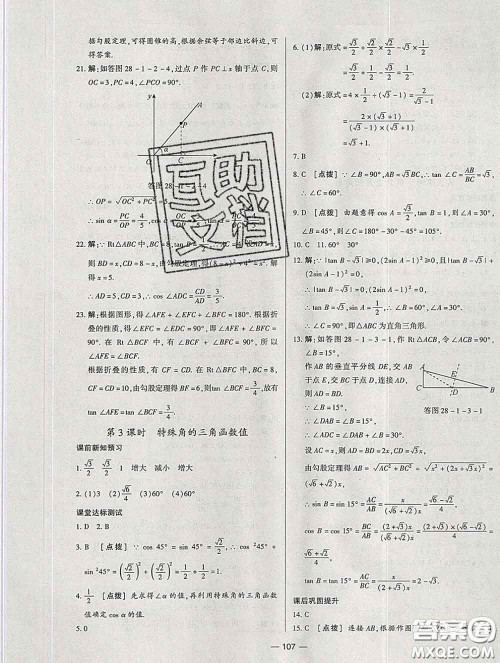 据勾股定理,可得圆锥的高,根据余弦等于邻边比斜边,可
得答案.
21. 解:如答图 28-1-2-4,过点 P 作 PC⊥x 轴于点 C,则
OC=3,PC=4,∠PCO=90°.
y
P
α
O
C
x
答图 28-1-2-4
∴OP=√(OC²+PC²)=5.
∴sin α=PC/OP=4/5,cos α=
22. 解:∵Rt△ABC 中,BC=8,tan B=
则 BD=x,CD=8-x,由勾股定理,得(8-x)²+4²=x².
∴AD=5,CD=3,∴cos∠ADC=CD/AD=3/5.
23. 解:根据图形,得∠AFE+∠EFC+∠BFC=180°,根据折
叠的性质,得∠EFC=∠EDC=90°,即∠AFE+∠BFC=
90°. 在 Rt△BCF 中,∠BCF+∠BFC=90°,∴∠AFE=
∠BCF. 在 Rt△BFC 中,根据折叠的性质,有 BC=8,
CF=CD=10,由勾股定理得 BF=6,则tan∠BCF=3/4,故
tan∠AFE=tan∠BCF=3/4.
第 3 课时 特殊角的三角函数值
课前新知预习
1. √3/2 √2/2 1 增大 减小 增大
2. (1)3 (2)√6/4 (3)60° (4)60°
课堂达标测试
1. D 2. B
3. B [点拨] ∵cos 45°=sin 45°=√2/2,∴cos²45°+
sin²45°=(√2/2)²+(√2/2)²=1/2+1/2=1.
4. 1/2 [点拨] 先求得∠α的值,再利用特殊角的三角函数
值确定 cos α 的值.
5. 0
6. (1)解:原式=√3/2+√2/2×√2/2-√3×1/2
=√3/2+1/2-√3/2
=1/2.
(2)解:原式=4×1/2+2/(√3-1)
=2×(√3+1)/((√3-1)×(√3+1))
=√3+3.
7. B
8. C [点拨] ∵∠B=90°,AB=√3BC,∴tan∠C=AB/BC=√3,
∴∠C=60°.
9. D [点拨] 由题意得 cos A=√3/2,tan B=√3,则∠A=30°,
∠B=60°,∴∠C=180°-30°-60°=90°.
10. C 11. 60° 30°
12. 解:∵|tan B-√3|≥0,(2sin A-1)²≥0,且|tan B-√3|+
(2sin A-1)²=0,
∴|tan B-√3|=0,(2sin A-1)²=0.∴tan B=√3,sin A=1/2.
∴∠B=60°,∠A=30°.∴∠C=90°,即△ABC 为直角三角形.
13. 解:如答图 28-1-3-1,
作 AB 的垂直平分线 DE,交 AB
于点 E,交 BC 于点 D,连接 AD.
∴AD=BD.
∴∠ADC=2∠B=30°.
A
E
C
D
B
答图 28-1-3-1
设 AC=x,则 AD=BD=2x,CD=√3x.
由勾股定理,得 AB=√(AC²+BC²)=√(x²+(2x+√3x)²)=
(√6+√2)x.
∴sin B=AC/AB=x/((√6+√2)x)
cos B=BC/AB=(2+√3)x/((√6+√2)x)
tan B=AC/BC=x/((2+√3)x)
课后巩固提升
14. C
15. C [点拨] 连接 AB,根据作图
107
互助文档
答案圈
MXQE.COM